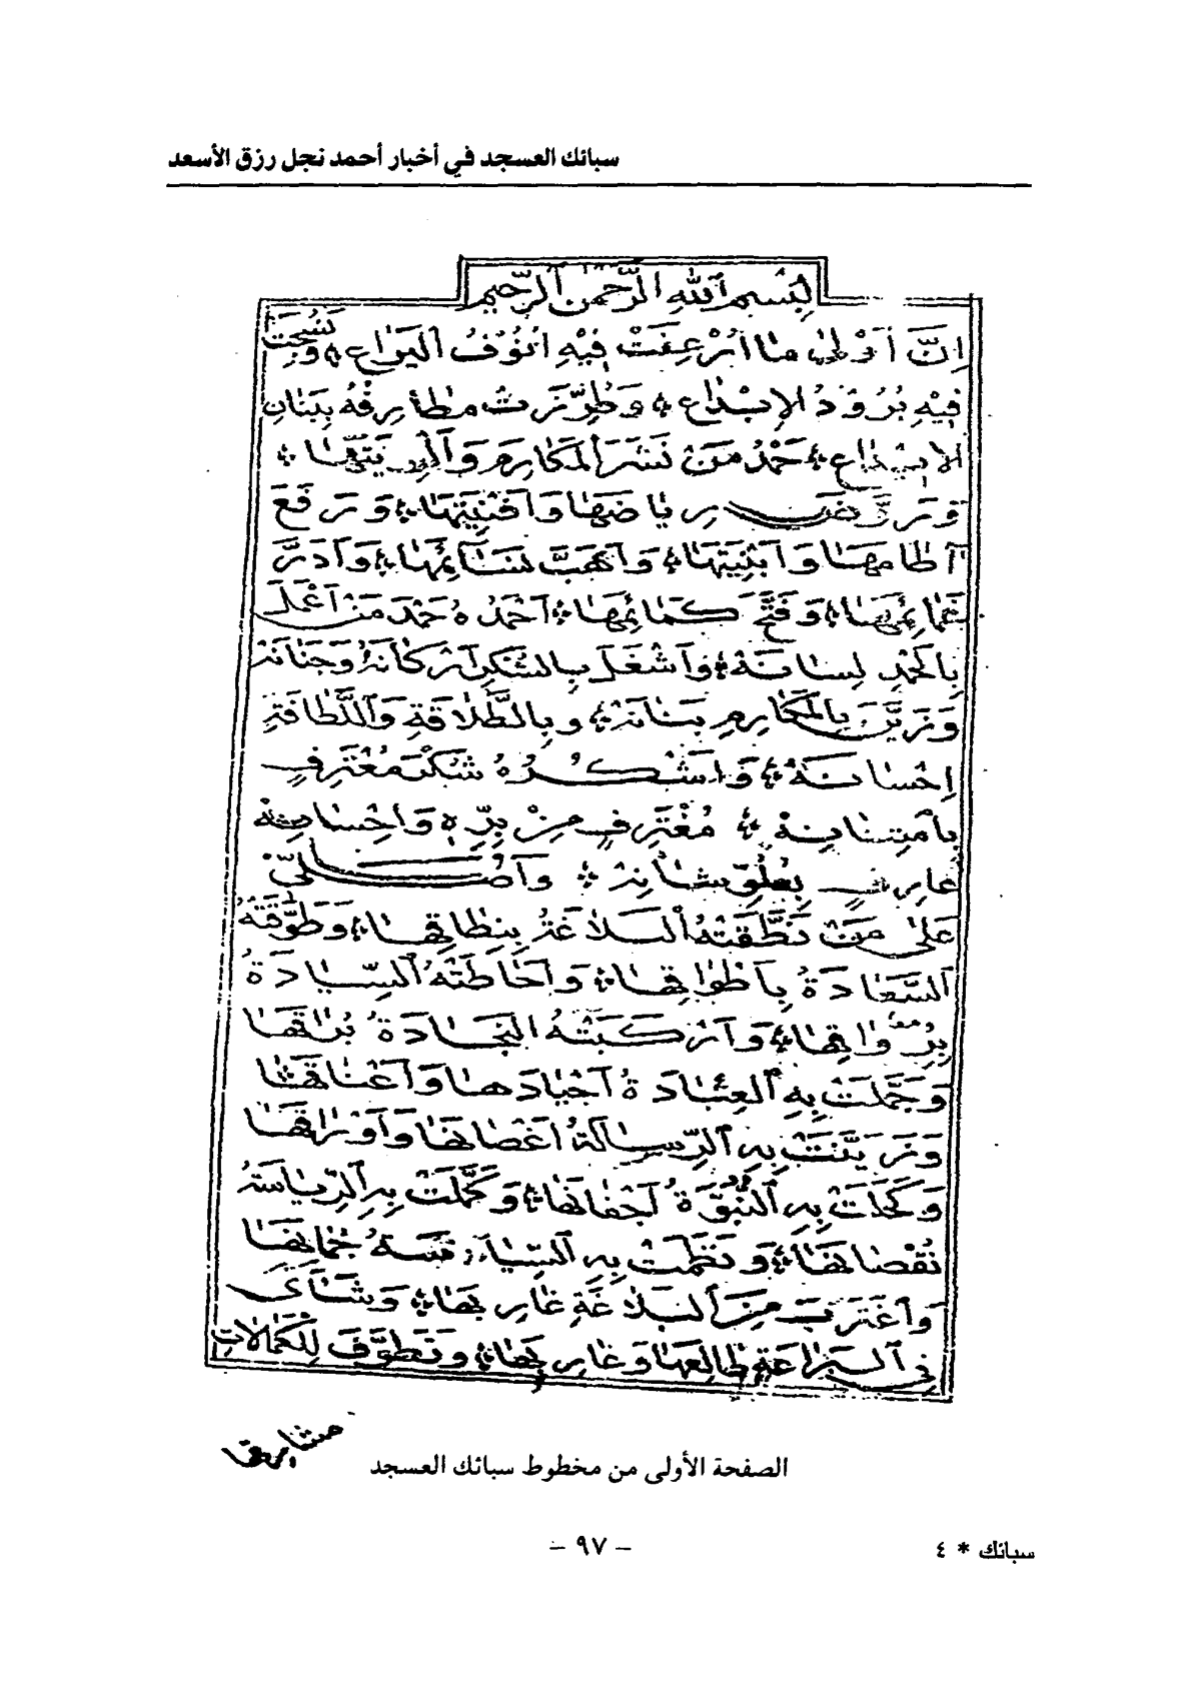 سبائك العسجد في أخبار أحمد نجل رزق الأسعد
بِسْمِ ٱللهِ الرَّحْمٰنِ ٱلرَّحِيم
اِنَّ أَوْلىٰ مَا أُرْعِفَتْ فِيْهِ اُنُوْفُ اليَرَاعِ وَنُسِجَتْ
فِيْهِ بُرُوْدُ الإِبْدَاعِ وَطُرِّزَتْ مَطَارِفُهُ بِبَنَانِ
حَمْدُ مَنْ نَشَرَ المَكَارِم
وَرَوَّضَ رِيَاضَهَا وَاَفْنِيَتَهَا وَرَفَعَ
آطَامَهَا وَاَبْنِيَتَهَا وَاَهَبَّ نَسَآئِمَهَا وَاَدَرَّ
غَمَائِمَهَا وَفَتَّحَ كَمَائِمَهَا اَحْمَدُهُ حَمْدَ مَنْ اَعْمَلَ
بِالحَمْدِ لِسَانَهُ وَاَشْغَلَ بِالشُّكْرِ اَرْكَانَهُ وَجَنَانَهُ
وَزَيَّنَ بِالمَكَارِمِ بَنَانَهُ وبِالطَّلَاقَةِ وَاللَّطَافَةِ
اِحْسَانَهُ وَاَشْكُرُهُ شُكْرَ مُعْتَرِفٍ
بِاْمْتِنَانِهْ مُغْتَرِفٍ مِنْ بِرِّهِ وَاِحْسَانِهْ
عَارِفٍ بِعُلُوِّ شَانِهْ وَاُصَلِّي
عَلىٰ مَنْ نَطَّقَتْهُ ٱلبَلَاغَةُ بِنِطَاقِهَا وَطَوَّقَتْهُ
ٱلسَّعَادَةُ بِاَطْوَاقِهَا وَاَحَاطَتْهُ ٱلسِّيَادَةُ
بِرُوَاقِهَا وَاَرْكَبَتْهُ النَّجَادَةُ بُرَاقَهَا
وَجَمَّلَتْ بِهِ ٱلعِبَادَةُ اَجْيَادَهَا وَاَعْنَاقَهَا
وَزَيَّنَتْ بِهِ ٱلرِّسَالَةُ اَغْصَانَهَا وَاَوْرَاقَهَا
وَكَحَلَتْ بِهِ ٱلنُّبُوَّةُ اَجْفَانَهَا وَكَمَّلَتْ بِهِ ٱلرِّيَاسَةُ
نُقْصَانَهَا وَنَظَمَتْ بِهِ جُمَانَهَا
وَٱغْتَرَبَ مِنَ ٱلبَلَاغَةِ غَارِبَهَا وَشَآى
فِي ٱلبَرَاعَةِ طَالِعَهَا وَغَارِبَهَا وَتَطَوَّفَ لِلْكَمَالَاتِ
مشارق
الصفحة الأولى من مخطوط سبائك العسجد
– ٩٧ –
سبائك * ٤